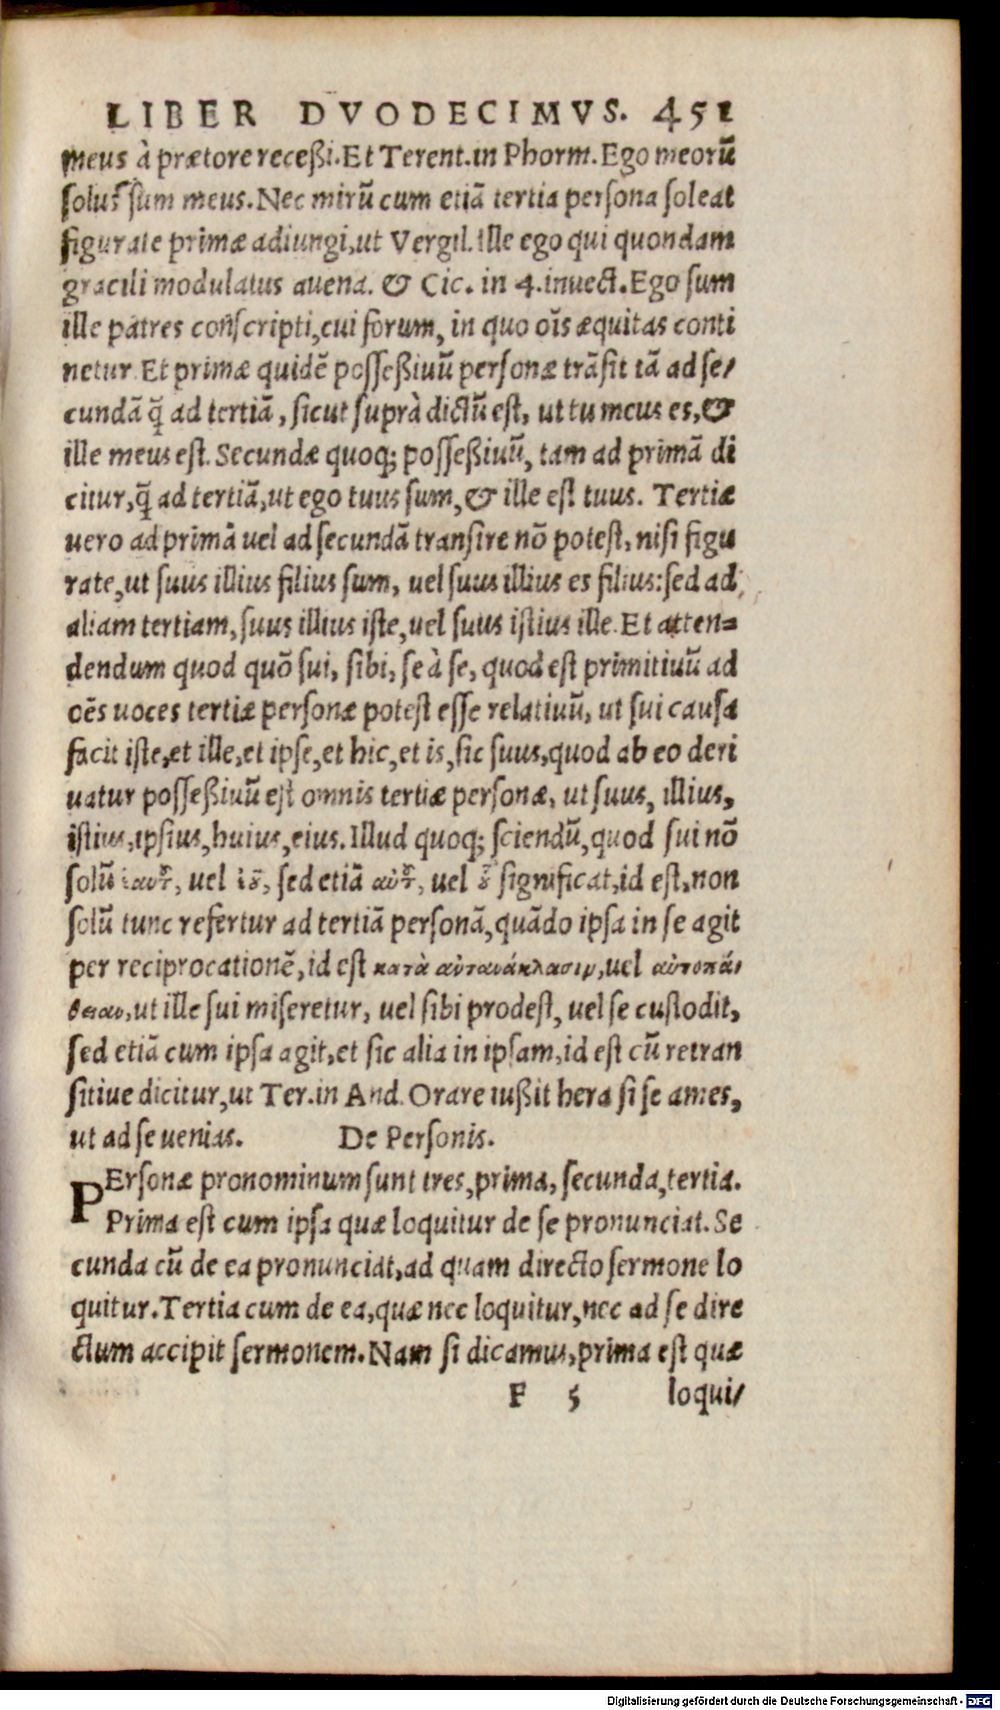 LIBER DVODECIMVS. 451
meus à prætore receßi. Et Terent. in Phorm. Ego meorũ
solus sum meus. Nec mirũ cum etiã tertia persona soleat
figurate primæ adiungi, ut Vergil. Ille ego qui quondam
gracili modulatus auena. & Cic. in 4. inuect. Ego sum
ille patres conscripti, cui forum, in quo oĩs æquitas conti
netur. Et primæ quidẽ possessiuũ personæ trãsit tã ad se/
cundã q̃ ad tertiã, sicut suprà dictũ est, ut tu meus es, &
ille meus est. Secundæ quoq; posseßiuũ, tam ad primã di
citur, q̃ ad tertiã, ut ego tuus sum, & ille est tuus. Tertiæ
uero ad primã uel ad secundã transire nõ potest, nisi figu
rate, ut suus illius filius sum, uel suus illius es filius: sed ad
aliam tertiam, suus illius iste, uel suus istius ille. Et atten=
dendum quod quõ sui, sibi, se à se, quod est primitiuũ ad
oẽs uoces tertiæ personæ potest esse relatiuũ, ut sui causa
facit iste, et ille, et ipse, et hic, et is, sic suus, quod ab eo deri
uatur posseßiuũ est omnis tertiæ personæ, ut suus, illius,
istius, ipsius, huius, eius. Illud quoq; sciendũ, quod sui nõ
solũ uel sed etiã uel significat, id est, non
solũ tunc refertur ad tertiã personã, quãdo ipsa in se agit
per reciprocationẽ, id est κατὰ αὐτανάκλασιν, uel αὐτοπά/
θειαν, ut ille sui miseretur, uel sibi prodest, uel se custodit,
sed etiã cum ipsa agit, et sic alia in ipsam, id est cũ retran
sitiue dicitur, ut Ter. in And. Orare iußit hera si se ames,
ut ad se uenias. De Personis.
PErsonæ pronominum sunt tres, prima, secunda, tertia.
Prima est cum ipsa quæ loquitur de se pronunciat. Se
cunda cũ de ea pronunciat, ad quam directo sermone lo
quitur. Tertia cum de ea, quæ nec loquitur, nec ad se dire
ctum accipit sermonem. Nam si dicamus, prima est quæ
F 5 loqui/
Digitalisierung gefördert durch die Deutsche Forschungsgemeinschaft - DFG